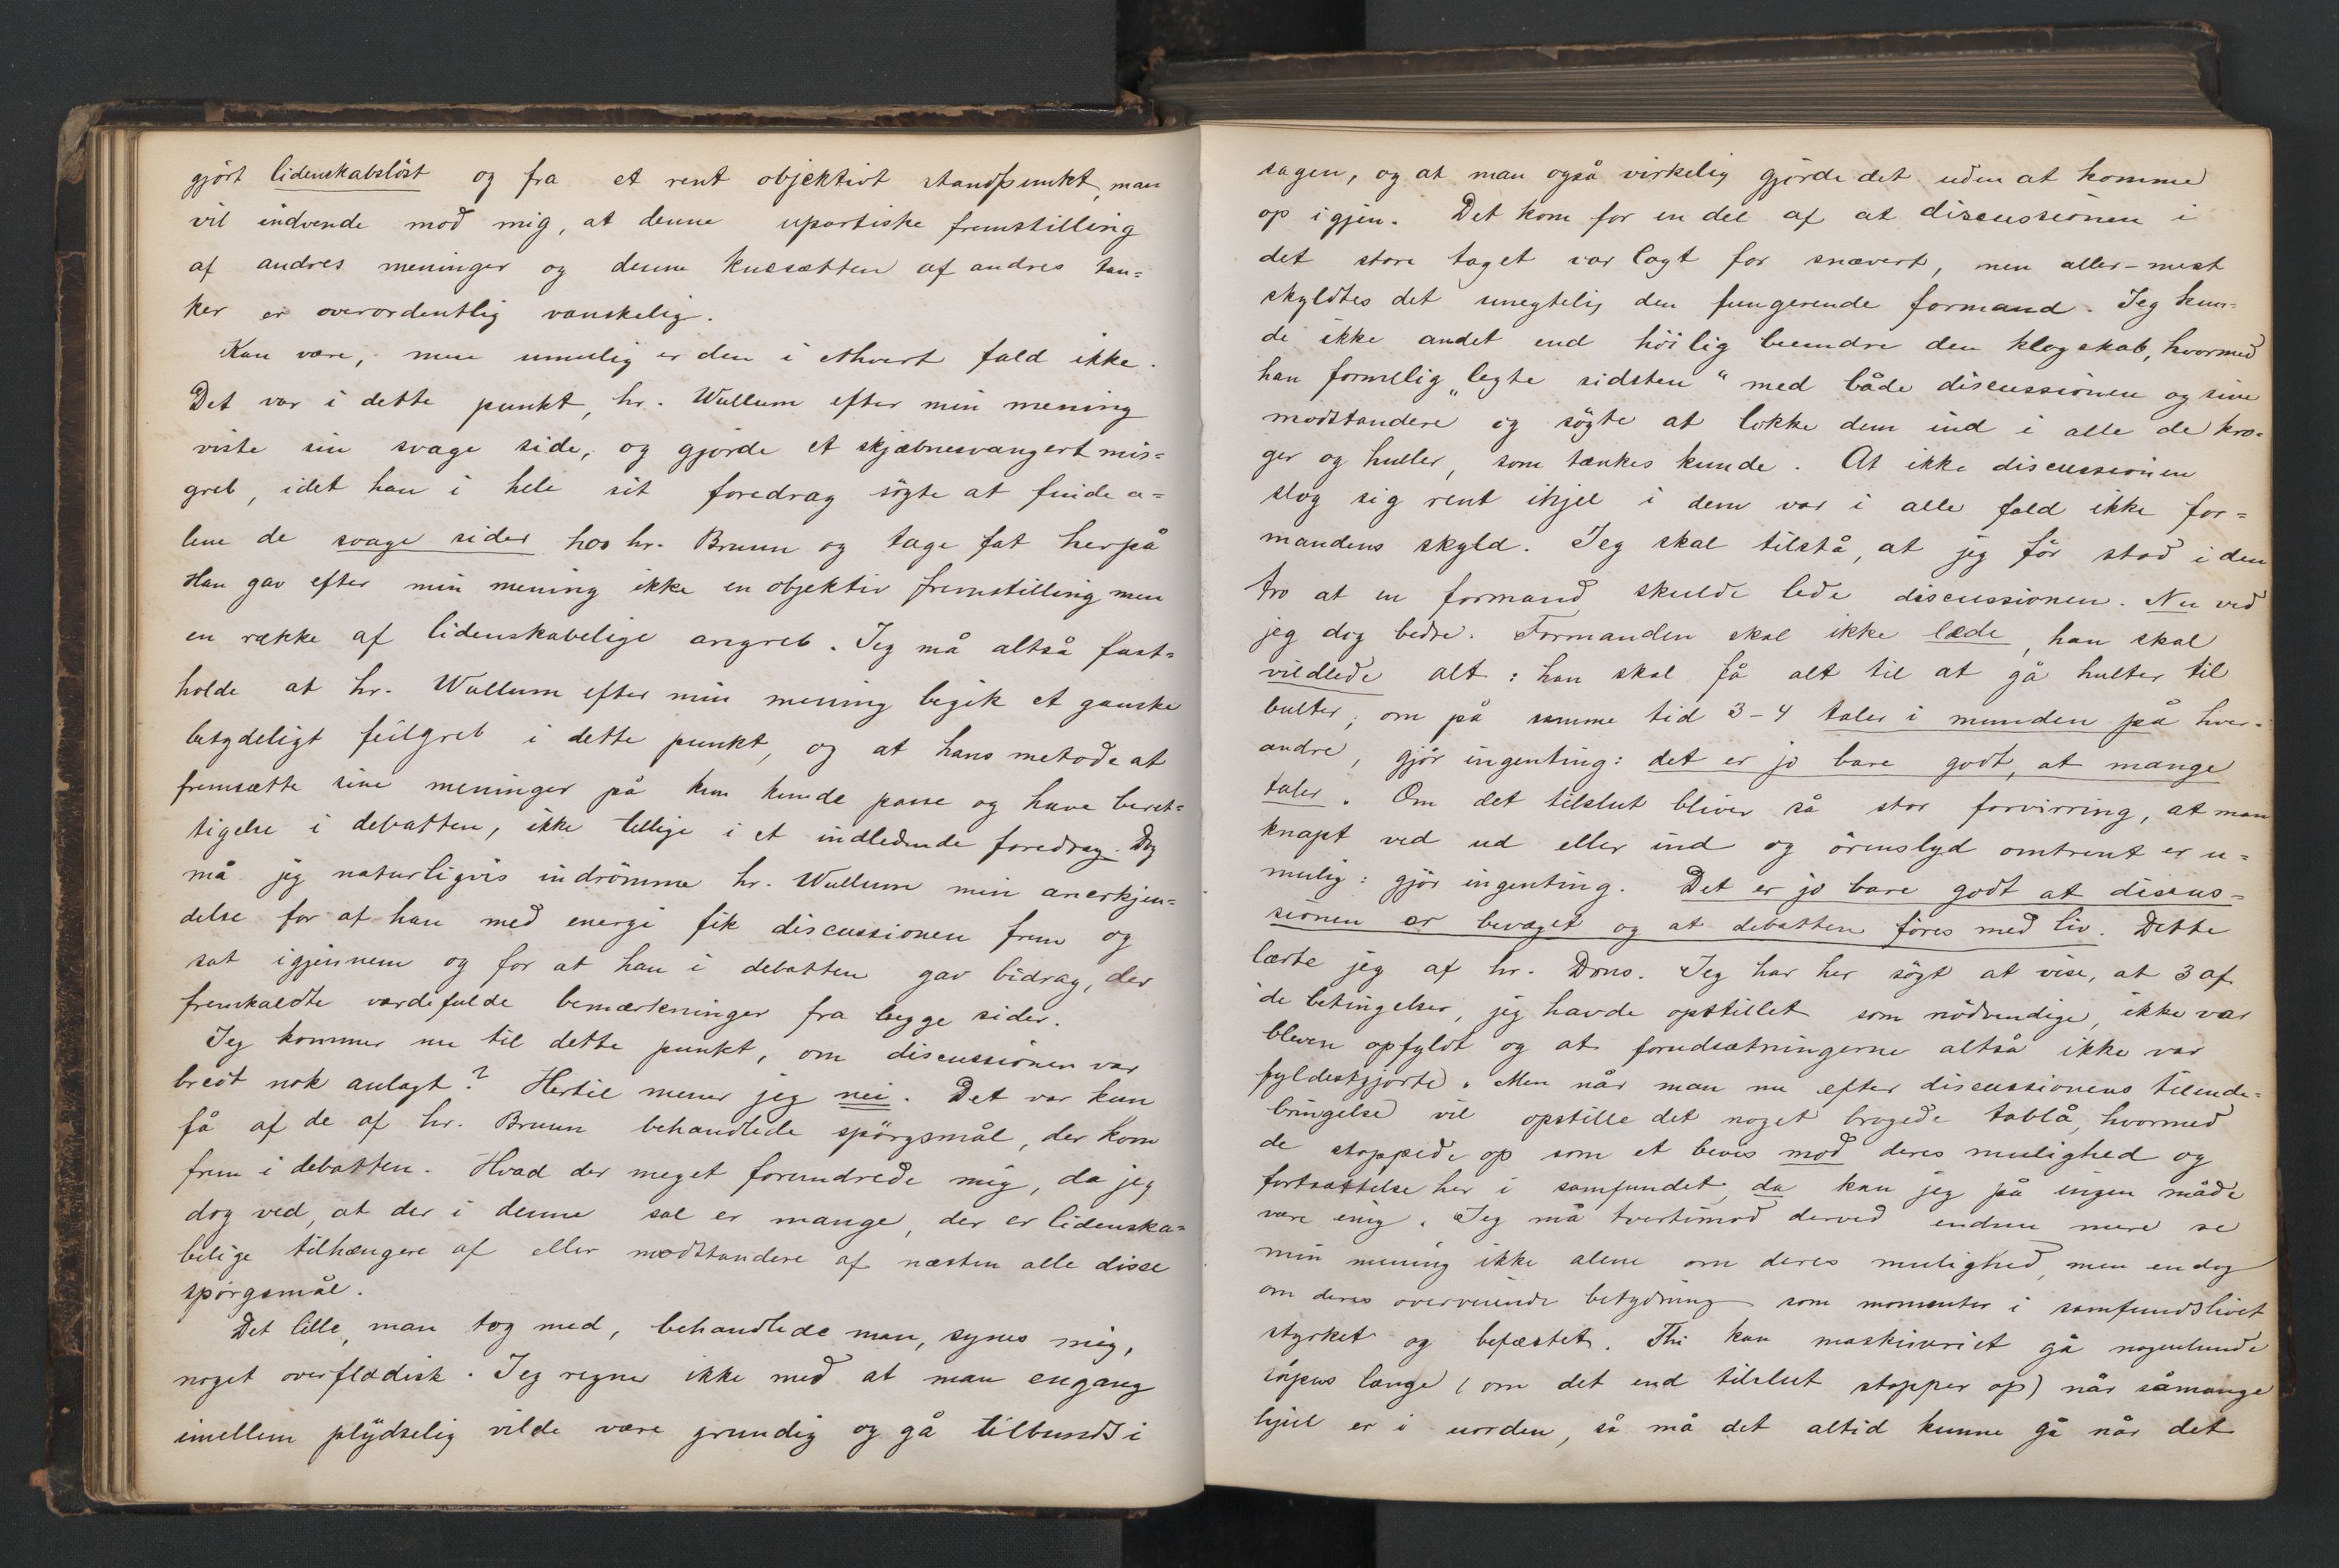 gjört lidenskabslöst og fra et rent objektivt standpunkt, man
vil indvende mod mig, at denne upartiske fremstilling
af andres meninger og denne knesætten af andres tan=
ker er overordentlig vanskelig.
Kan være, men umulig er den i ethvert fald ikke.
Det var i dette punkt, hr. Wullum efter min mening
viste sin svage side, og gjorde et skjæbnesvangert mis=
greb, idet han i hele sit foredrag sögte at finde a=
lene de svage sider hos hr. Bruun og tage fat herpå
Han gav efter min mening ikke en objektiv fremstilling men
en række af lidenskabelige angreb. Jeg må altså fast=
holde at hr. Wullum efter min mening begik et ganske
betydeligt feilgreb i dette punkt, og at hans metode at
fremsætte sine meninger på kun kunde passe og have beret=
tigelse i debatten, ikke tillige i et indledende foredrag. Dog
må jeg naturligvis indrömme hr. Wullum min anerkjen=
delse for at han med energi fik discussionen frem og
sat igjennem og for at han i debatten gav bidrag, der
fremkaldte værdifulde bemærkninger fra begge sider.
Jeg kommer nu til dette punkt, om discussionen var
bredt nok anlagt? Hertil mener jeg nei. Det var kun
få af de af hr. Bruun behandlede spörgsmål, der kom
frem i debatten. Hvad der meget forundrede mig, da jeg
dog ved, at der i denne sal er mange, der er lidenska=
belige tilhængere af eller modstandere af næsten alle disse
spörgsmål.
Det lille, man tog med, behandlede man, synes mig,
noget overfladisk. Jeg regner ikke med at man engang
imellem plydselig vilde være grundig og gå tilbunds i
sagen, og at man også virkelig gjörde det uden at komme
op igjen. Det kom for en del af at discussionen i
det store taget var lagt for snævert, men aller-mest
skyldtes det unegtelig den fungerende formand. Jeg kun=
de ikke andet end höilig beundre den klogskab, hvormed
han formelig „legte sidsten" med både discussionen og sine
modstandere og sögte at lokke dem ind i alle de kro=
ger og huller, som tænkes kunde. At ikke discussionen
slog sig rent ihjel i dem var i alle fald ikke for=
mandens skyld. Jeg skal tilstå, at jeg för stod i den
tro at en formand skulde lede discussionen. Nu ved
jeg dog bedre. Formanden skal ikke lede, han skal
vildlede alt: han skal få alt til at gå hulter til
bulter; om på samme tid 3-4 taler i munden på hver=
andre, gjör ingenting: det er jo bare godt, at mange
taler. Om det tilslut bliver så stor forvirring, at man
knapt ved ud eller ind og örenslyd omtrent er u=
mulig: gjör ingenting. Det er jo bare godt at discus=
sionen er bevæget og at debatten föres med liv. Dette
lærte jeg af hr. Dons. Jeg har her sögt at vise, at 3 af
de betingelser, jeg havde opstillet som nödvendige, ikke var
bleven opfyldt og at forudsætningerne altså ikke var
fyldestgjorte. Men når man nu efter discussionens tilende=
bringelse vil opstille det noget brogede tablå, hvormed
de stoppede op som et bevis mod deres mulighed og
fortsættelse her i samfundet, da kan jeg på ingen måde
være enig. Jeg må tvertimod derved endnu mere se
min mening ikke alene om deres mulighed, men endog
om deres overveiende betydning som momenter i samfundslivet
styrket og befæstet. Thi kan maskineriet gå nogenlunde
såpas længe (om det end tilslut stopper op) når såmange
hjul er i uorden, så må det altid kunne gå når det